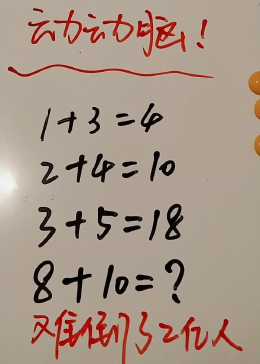 动动动脑!
1+3=4
2+4=10
3+5=18
8+10=?
又难倒了2亿人